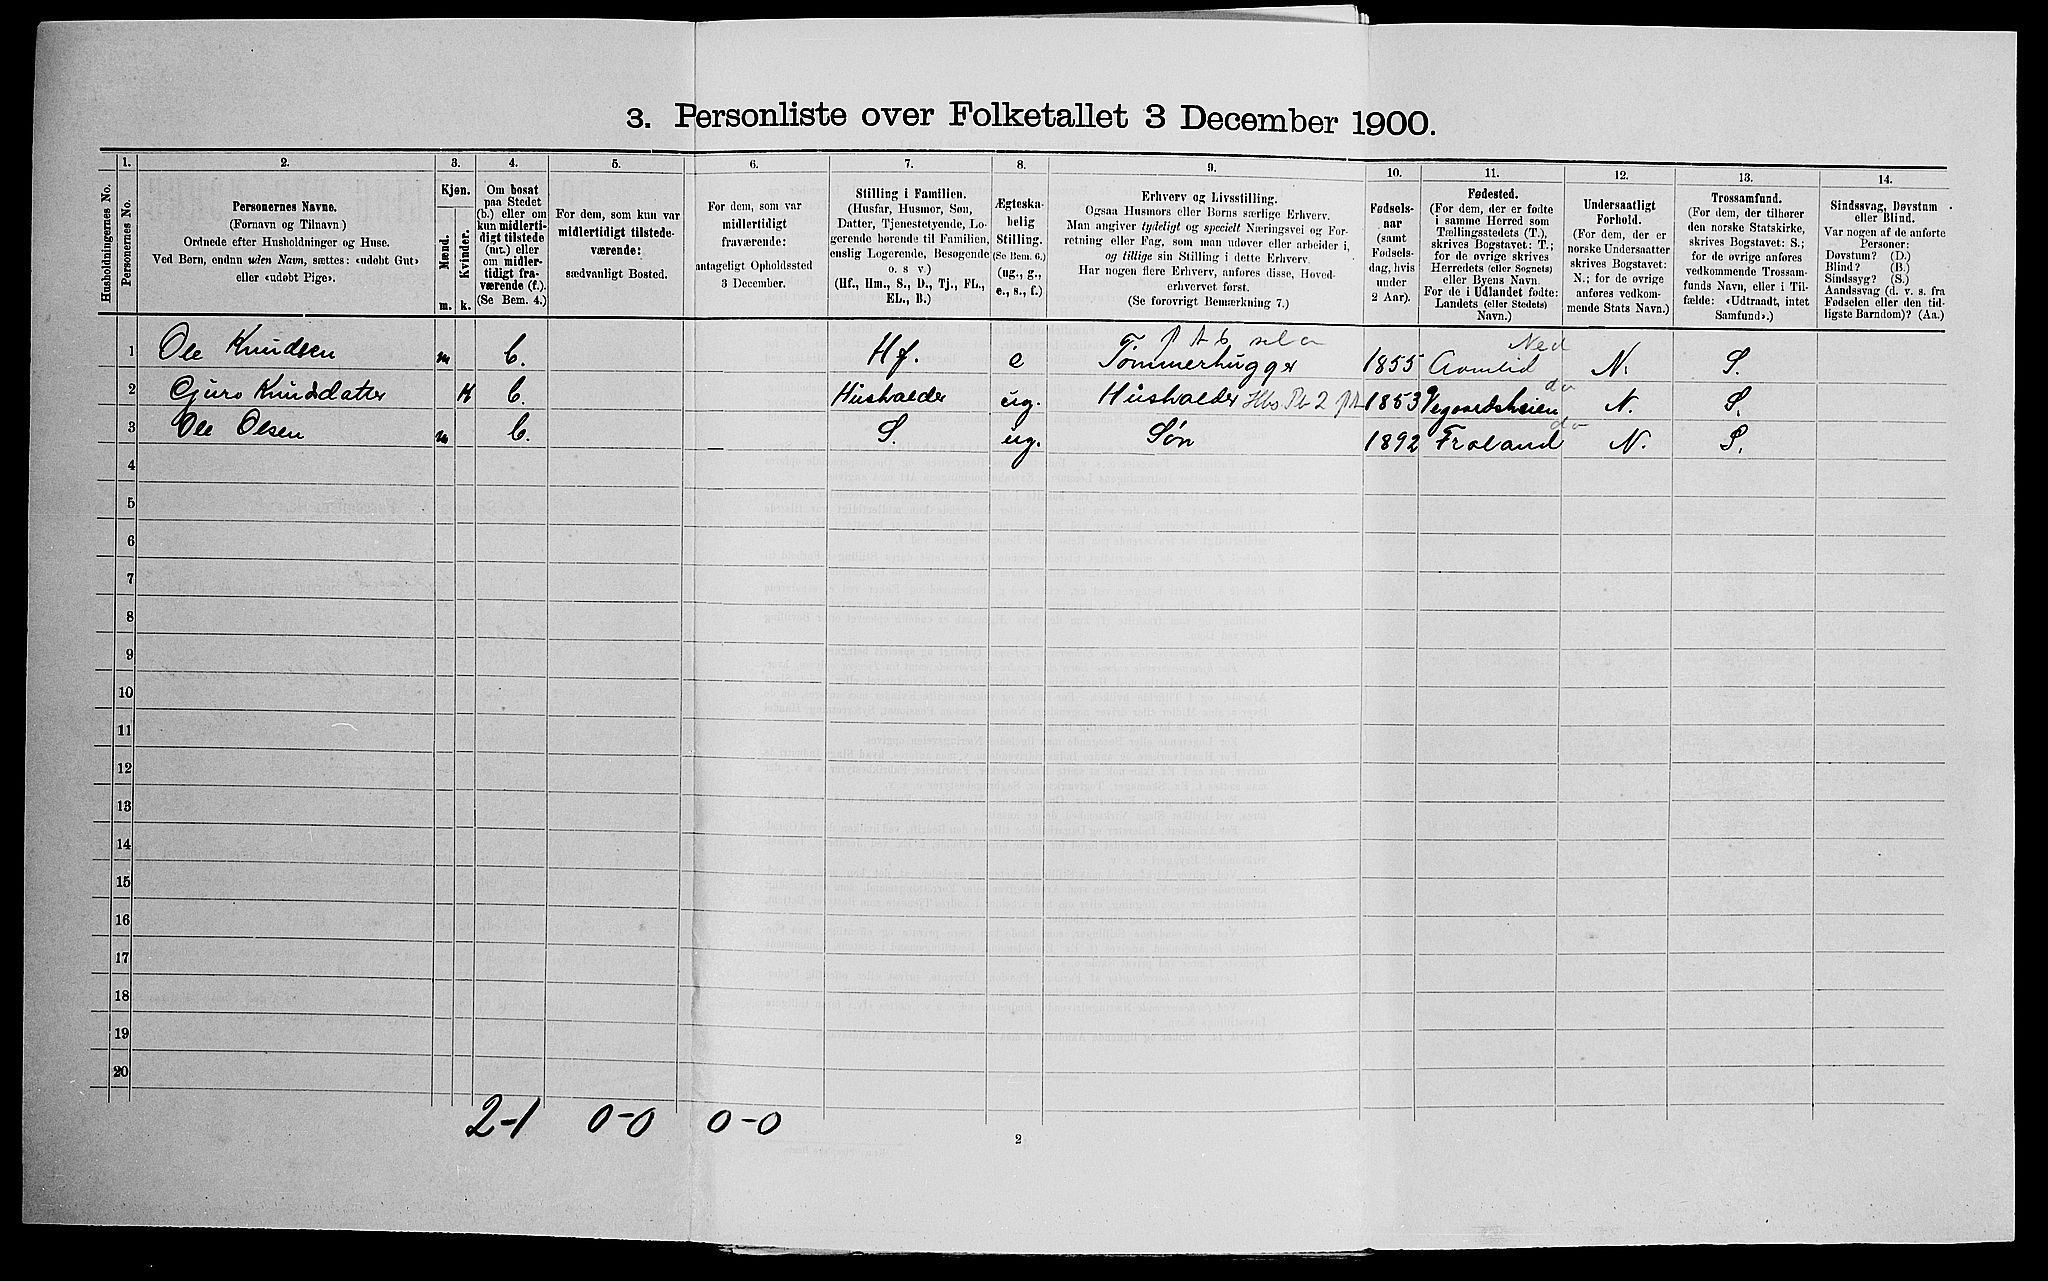 3. Personliste over Folketallet 3 December 1900.
1. 2. 3. 4. 5. 6. 7. 8. 9. 10. 11. 12. 13. 14.
Husholdningernes No.
Personernes No.
Personernes Navne.
(Fornavn og Tilnavn)
Ordnede efter Husholdninger og Huse.
Ved Børn, endnu uden Navn, sættes: «udøbt Gut»
eller «udøbt Pige».
Kjøn.
Mænd.
Kvinder.
m. k.
Om bosat
paa Stedet
(b.) eller om
kun midlerti-
digt tilstede
(mt.) eller
om midler-
tidigt fra-
værende (f.).
(Se Bem. 4.)
For dem, som kun var
midlertidigt tilstede-
værende:
sædvanligt Bosted.
For dem, som var
midlertidigt
fraværende:
antageligt Opholdssted
3 December.
Stilling i Familien.
(Husfar, Husmor, Søn,
Datter, Tjenestetyende, Lo-
gerende hørende til Familien,
enslig Logerende, Besøgende
o. s v.)
(Hf., Hm., S., D., Tj., FL.,
EL., B.)
Ægteska-
belig
Stilling.
(Se Bem. 6.)
(ug., g.,
e., s., f.)
Erhverv og Livsstilling.
Ogsaa Husmors eller Børns særlige Erhverv.
Man angiver tydeligt og specielt Næringsvei og For-
retning eller Fag, som man udøver eller arbeider i,
og tillige sin Stilling i dette Erhverv.
Har nogen flere Erhverv, anføres disse, Hoved-
erhvervet først.
(Se forøvrigt Bemærkning 7.)
Fødsels-
aar
(samt
Fødsels-
dag, hvis
under
2 Aar).
Fødested.
(For dem, der er fødte
i samme Herred som
Tællingsstedets (T.),
skrives Bogstavet: T.;
for de øvrige skrives
Herredets (eller Sognets)
eller Byens Navn.
For de i Udlandet fødte:
Landets (eller Stedets)
Navn.)
Undersaatligt
Forhold.
(For dem, der er
norske Undersaatter
skrives Bogstavet:
N.; for de øvrige
anføres vedkom-
mende Stats Navn.)
Trossamfund.
(For dem, der tilhører
den norske Statskirke,
skrives Bogstavet: S.;
for de øvrige anføres
vedkommende Trossam-
funds Navn, eller i Til-
fælde: «Udtraadt, intet
Samfund».)
Sindssvag, Døvstum
eller Blind.
Var nogen af de anførte
Personer:
Døvstum? (D.)
Blind? (B.)
Sindssyg? (S.)
Aandssvag (d. v. s. fra
Fødselen eller den tid-
ligste Barndom)? (Aa.)
Ned
1 Ole Knudsen m b. Hf. e Tømmerhugger 1855 Aamlid N. S.
2 Gjuro Knudsdatter K b. Husholder ug. Husholder 1853 Vegaardsheien do N. S.
3 Ole Olsen m b. S. ug. Søn 1892 Froland do N. S.
4
5
6
7
8
9
10
11
12
13
14
15
16
17
18
19
20
2-1 0-0 0-0
2